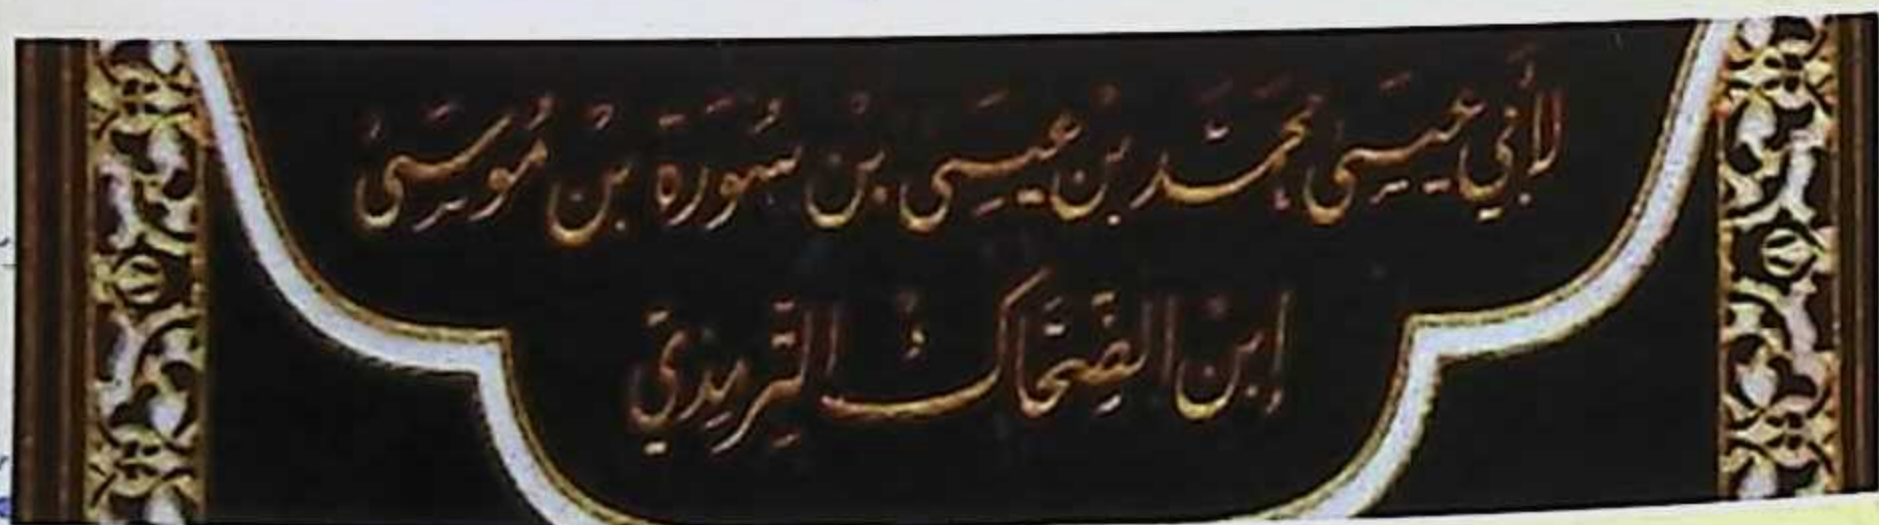 لأبي عيسى محمد بن عيسى بن سورة بن موسى
ابن الضحاك الترمذي